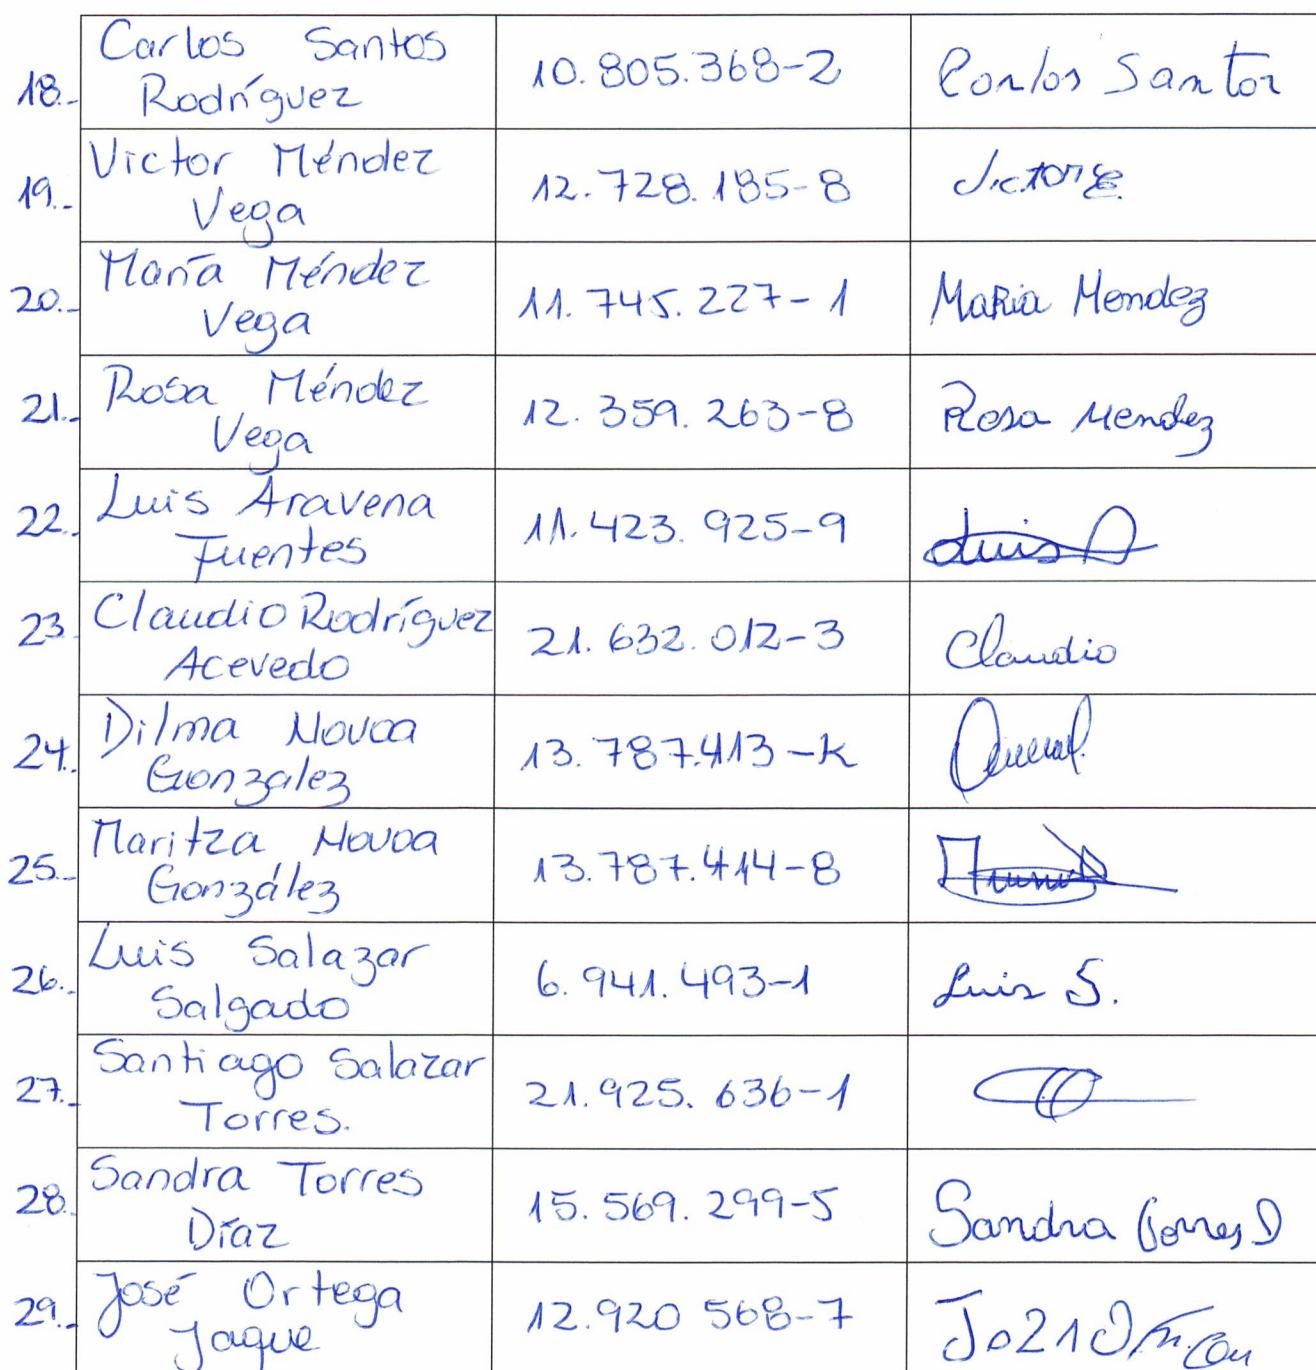 18.- Carlos Santos Rodríguez 10.805.368-2 Carlos Santos
19.- Victor Méndez Vega 12.728.185-8 Victor
20.- María Méndez Vega 11.745.227-1 Maria Mendez
21.- Rosa Méndez Vega 12.359.263-8 Rosa Mendez
22.- Luis Aravena Fuentes 11.423.925-9 Luis A
23. Claudio Rodríguez Acevedo 21.632.012-3 Claudio
24.- Dilma Novoa González 13.787.413-K
25.- Maritza Novoa González 13.787.414-8
26.- Luis Salazar Salgado 6.941.493-1 Luis S.
27.- Santiago Salazar Torres. 21.925.636-1
28.- Sandra Torres Díaz 15.569.299-5 Sandra Torres D
29.- José Ortega Jaque 12.920 568-7